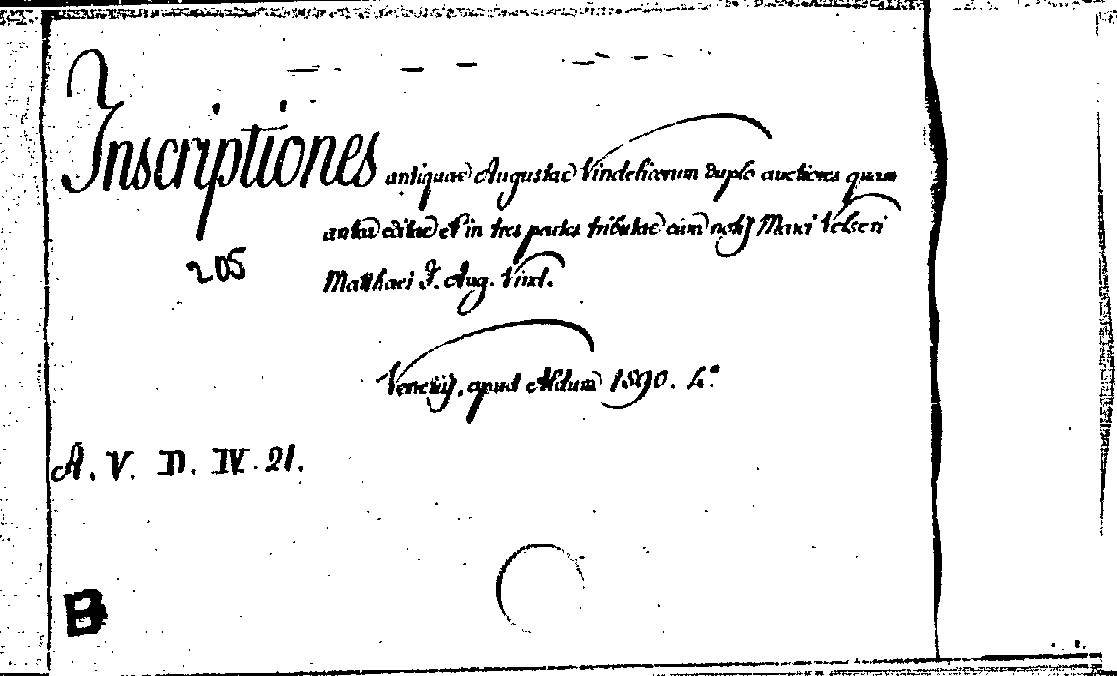 Inscriptiones antiquae Augustae Vindelicorum duplo auctiores quam
antea editae et in tres partes tributae cum notis Marci Velseri
Matthaei F. Aug. Vind.
205
Venetiis, apud Aldum 1590. 4°
A. V. D. IV. 21.
B